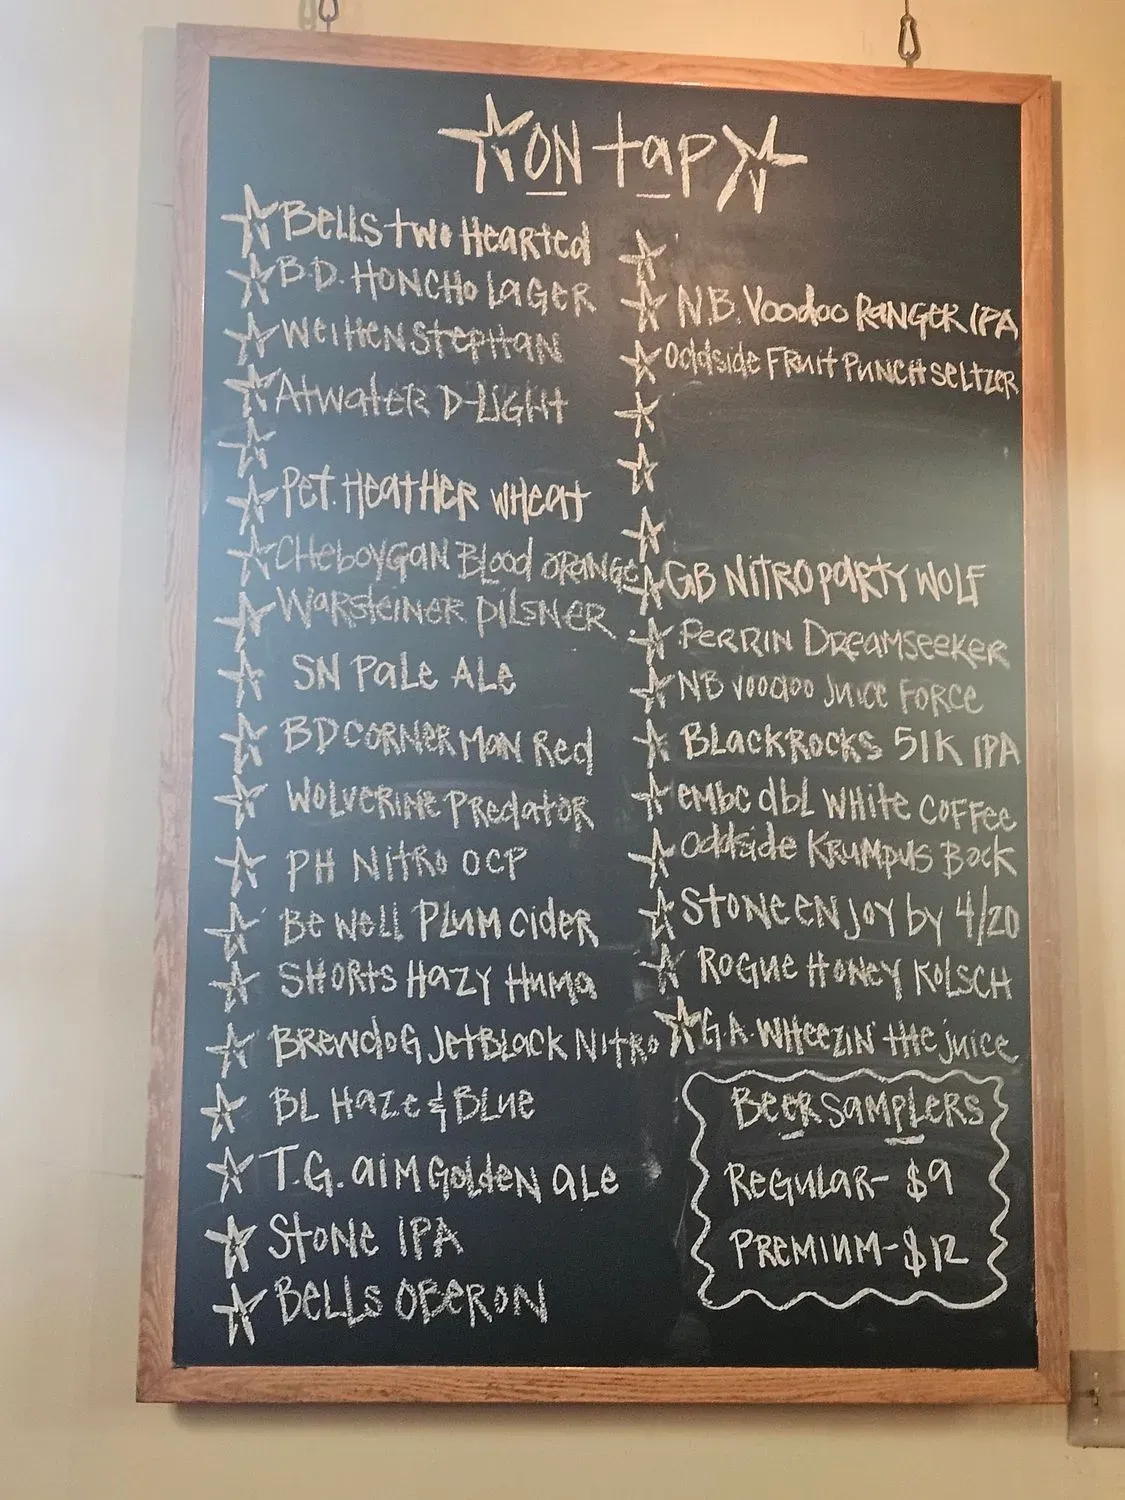 ON tap
Bells two Hearted
B.D. HONCHO LAGER
WeiHenstepHaN
Atwater D-LiGHt
Pet. HeatHer wHeat
CHeboyGaN Blood oraNge
Warsteiner pilsner
SN Pale Ale
BD CORNER MaN Red
WolveriNe Predator
PH Nitro OCP
Be Well Plum Cider
SHORts Hazy Huma
BrewdoG Jet Black Nitro
BL Haze & Blue
T.G. aiM GoldeN ale
StoNe IPA
Bells OBeroN
N.B. Voodoo RaNGer IPA
Oddside Fruit PuNcH seltzer
GB Nitro party Wolf
Perrin Dreamseeker
NB voodoo Juice Force
Blackrocks 51K IPA
embc dbl White Coffee
Oddside Krumpus Bock
StoNe eNjoy by 4/20
RoGue HoNey Kolsch
G.A. WHeeziN' tHe juice
Beer Samplers
Regular- $9
Premium- $12